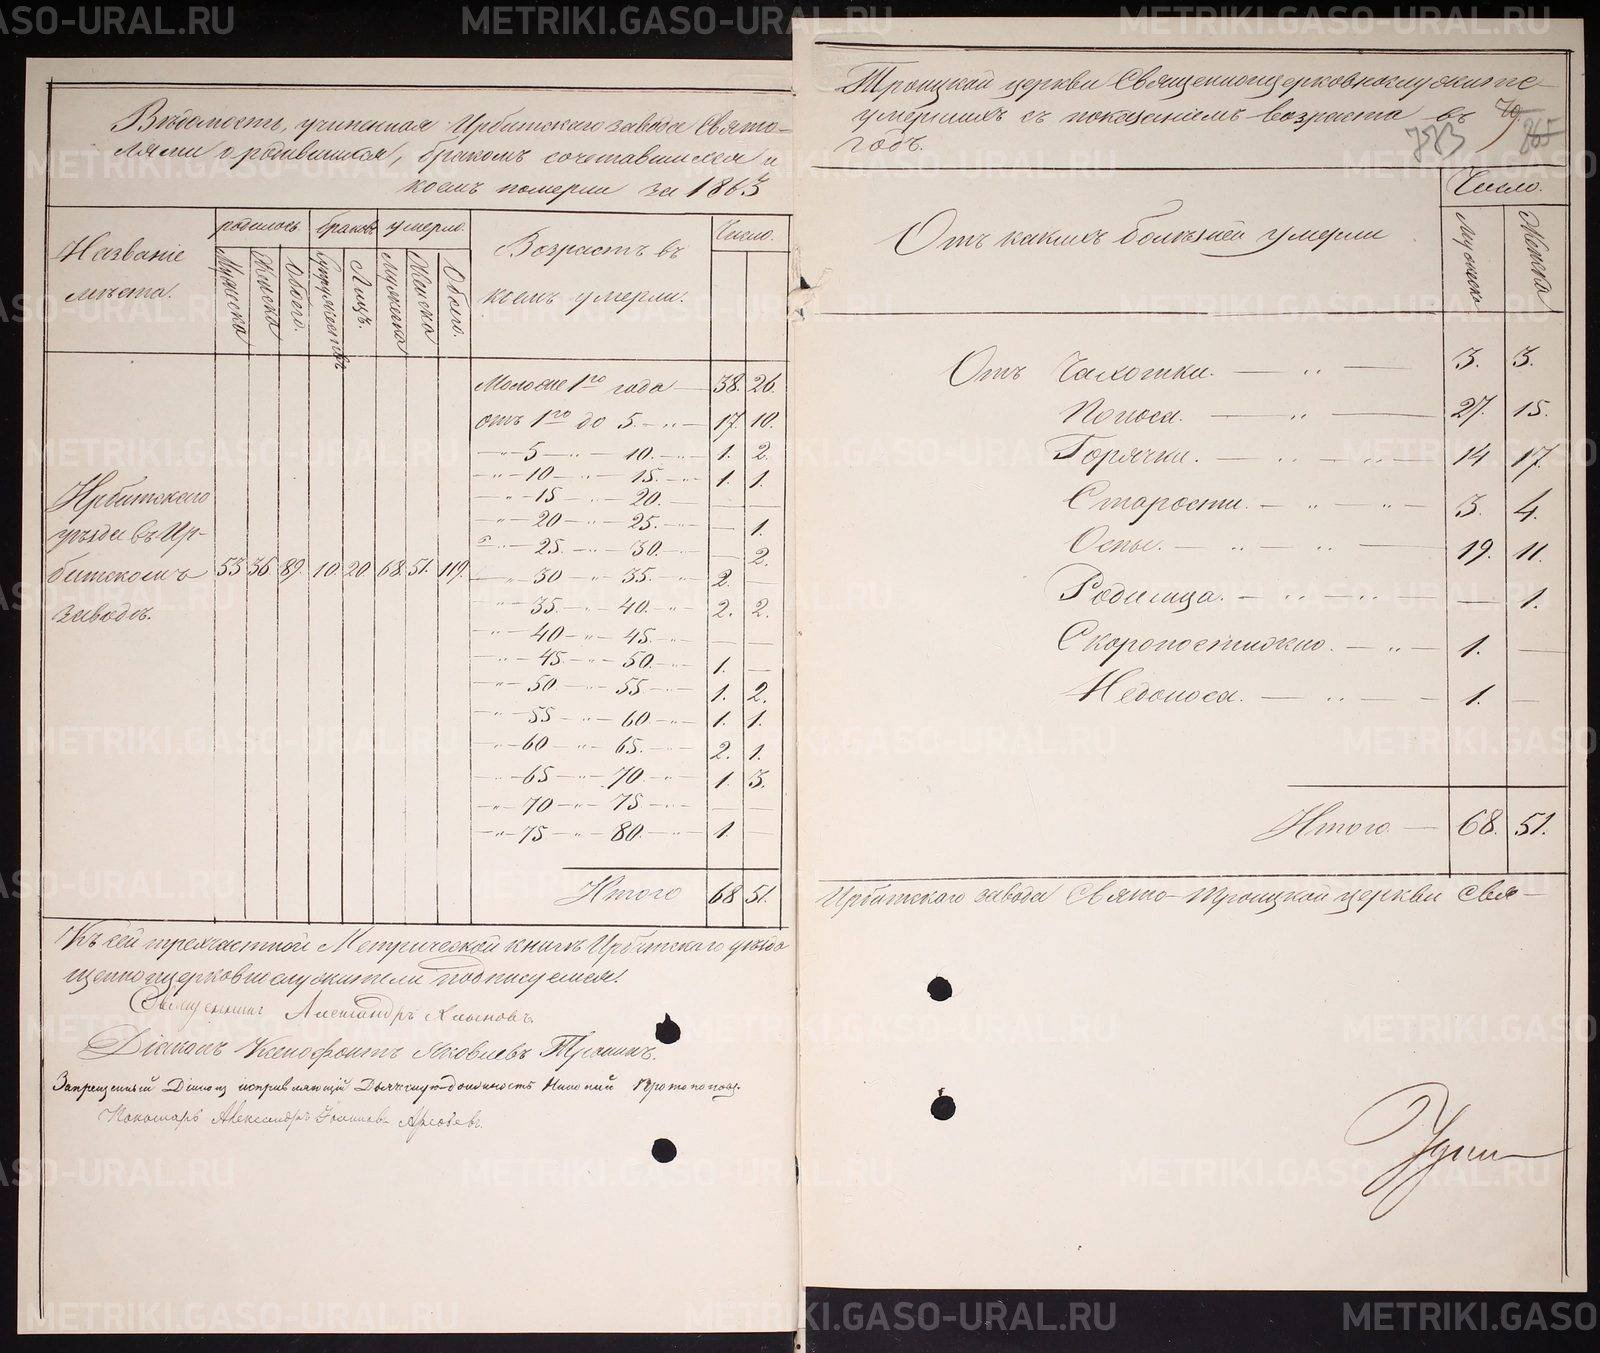 Вѣдомость, учиненная Ирбитскаго завода Свято-
лями о родившихся, бракомъ сочетавшихся и
коемъ померли за 1863
Названіе
мѣста.
родилось
браковъ
умерло.
Мужеска
Женска
Обоего.
Супружествъ
Лицъ.
Мужеска
Женска
Обоего.
Возрастъ въ
коемъ умерли.
Число.
Ирбитскаго
уѣзда въ Ир-
битскомъ
заводѣ.
53 36 89. 10. 20. 68. 51. 119.
Моложе 1го года — 38. 26.
отъ 1го до 5. - „ - 17. 10.
- „ - 5 - „ - 10. - „ - 1. 2.
- „ - 10 - „ - 15. - „ - 1. 1.
- „ - 15 - „ - 20. — — —
- „ - 20 - „ - 25. - „ - — 1.
- „ - 25. - „ - 30. - „ - — 2.
- „ - 30 - „ - 35. - „ - 2. —
- „ - 35. - „ - 40. - „ - 2. 2.
- „ - 40 - „ - 45. - „ - — —
- „ - 45. - „ - 50. - „ - 1. —
- „ - 50 - „ - 55 - „ - 1. 2.
- „ - 55 - „ - 60. - „ - 1. 1.
- „ - 60 - „ - 65. - „ - 2. 1.
- „ - 65 - „ - 70. - „ - 1. 3.
- „ - 70 - „ - 75 - „ - — —
- „ - 75 - „ - 80. - „ - 1. —
Итого 68 51.
Къ сей трехчастной Метрической книгѣ Ирбитскаго уѣзда
щенноцерковнослужители подписуемся:
Священникъ Александръ Хлыновъ.
Діаконъ Ксенофонтъ Яковлевъ
Запрещенный Діаконъ исправляющій Дьячкскую должность Николай Протопоповъ.
Пономарь Александръ
Троицкой церкви Священноцерковнослужите-
умершихъ съ показаніемъ возраста въ
годъ.
79.
265
783
Отъ какихъ болѣзней умерли
Число.
Мужеска
Женска
Отъ Чахотки. — „ — 3. 3.
Поноса. — „ — 27. 15.
Горячки. — „ — „ — 14 17.
Старости. — „ — „ — 3. 4.
Оспы. — „ — „ — 19. 11.
Родимца. — „ — „ — — 1.
Скоропостижно. — „ — 1. —
Недоноса. — „ — 1. —
Итого — 68. 51.
Ирбитскаго завода Свято-Троицкой церкви Свя-
METRIKI.GASO-URAL.RU